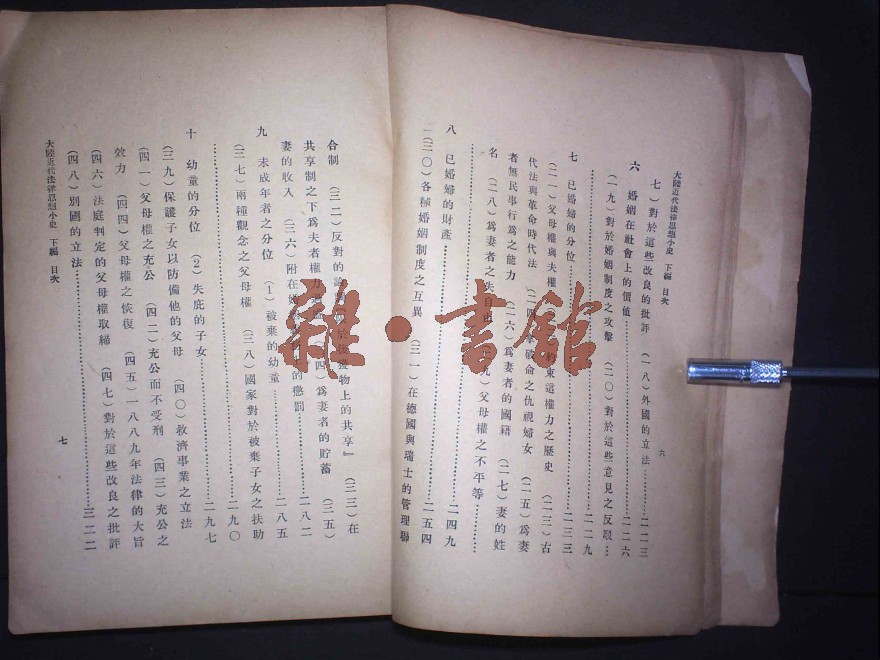 大陸近代法律思想小史 下編 目次
七）對於這些改良的批評 （一八）外國的立法…………二二三
六 婚姻在社會上的價値…………二二六
（一九）對於婚姻制度之攻擊 （二〇）對於這些意見之反駁…
…………二二九
七 已婚婦的分位…………二三三
（二一）父母權與夫權 約束這權力之歷史 （二三）古
代法與革命時代法 （二四） 破命之仇視婦女 （二五）爲妻
者無民事行爲之能力 （二六）爲妻者的國籍 （二七）妻的姓
名 （二八）爲妻者之失自由 九）父母權之不平等…
…………二四九
八 已婚婦的財產…………二五四
（三〇）各種婚姻制度之互異 （三一）在德國與瑞士的管理聯
六
合制 （三二）反對的論 獲物上的共享』 （三三）在
共享制之下爲夫者權力 四）爲妻者的貯蓄 （三五）
妻的收入 （三六）附在 的懲罰…………二八二
九 未成年者之分位 （1）被棄的幼童…………二八五
（三七）兩種觀念之父母權 （三八）國家對於被棄子女之扶助
…………二九〇
十 幼童的分位 （2）失庇的子女…………二九七
（三九）保護子女以防備他的父母 （四〇）救濟事業之立法
（四一）父母權之充公 （四二）充公而不受刑 （四三）充公之
效力 （四四）父母權之恢復 （四五）一八八九年法律的大旨
（四六）法庭判定的父母權取締 （四七）對於這些改良之批評
（四八）別國的立法…………三二二
大陸近代法律思想小史 下編 目次
七
雜·書館